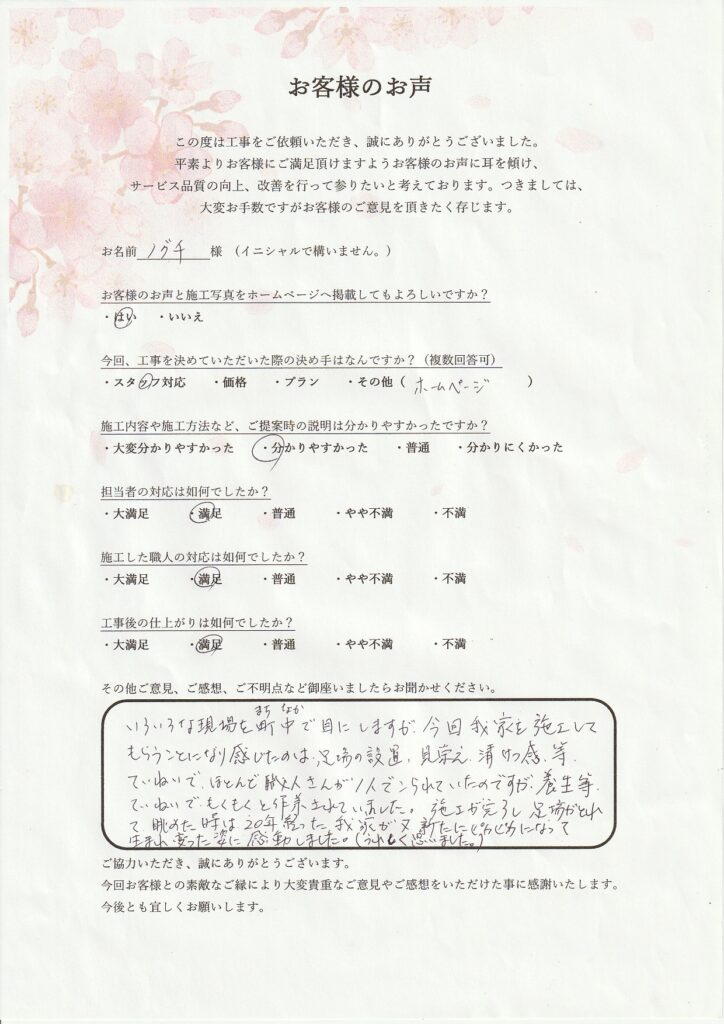 お客様のお声
この度は工事をご依頼いただき、誠にありがとうございました。
平素よりお客様にご満足頂けますようお客様のお声に耳を傾け、
サービス品質の向上、改善を行って参りたいと考えております。つきましては、
大変お手数ですがお客様のご意見を頂きたく存じます。
お名前 ノグチ 様 (イニシャルで構いません。)
お客様のお声と施工写真をホームページへ掲載してもよろしいですか?
・はい ・いいえ
今回、工事を決めていただいた際の決め手はなんですか?(複数回答可)
・スタッフ対応 ・価格 ・プラン ・その他( ホームページ )
施工内容や施工方法など、ご提案時の説明は分かりやすかったですか?
・大変分かりやすかった ・分かりやすかった ・普通 ・分かりにくかった
担当者の対応は如何でしたか?
・大満足 ・満足 ・普通 ・やや不満 ・不満
施工した職人の対応は如何でしたか?
・大満足 ・満足 ・普通 ・やや不満 ・不満
工事後の仕上がりは如何でしたか?
・大満足 ・満足 ・普通 ・やや不満 ・不満
その他ご意見、ご感想、ご不明点など御座いましたらお聞かせください。
まち なか
いろいろな現場を町中で目にしますが、今回我家を施工して
もらうことになり感じたのは、足場の設置、見栄え、清けつ感、等、
ていねいで、ほとんど職人さんが1人でこられていたのですが、養生等、
ていねいでもくもくと作業されていました。施工が完了し足場がとれ
て眺めた時は20年経った我家が又新たにピカピカになって
生まれ変った姿に感動しました。(うれしく思いました。)
ご協力いただき、誠にありがとうございます。
今回お客様との素敵なご縁により大変貴重なご意見やご感想をいただけた事に感謝いたします。
今後とも宜しくお願いします。